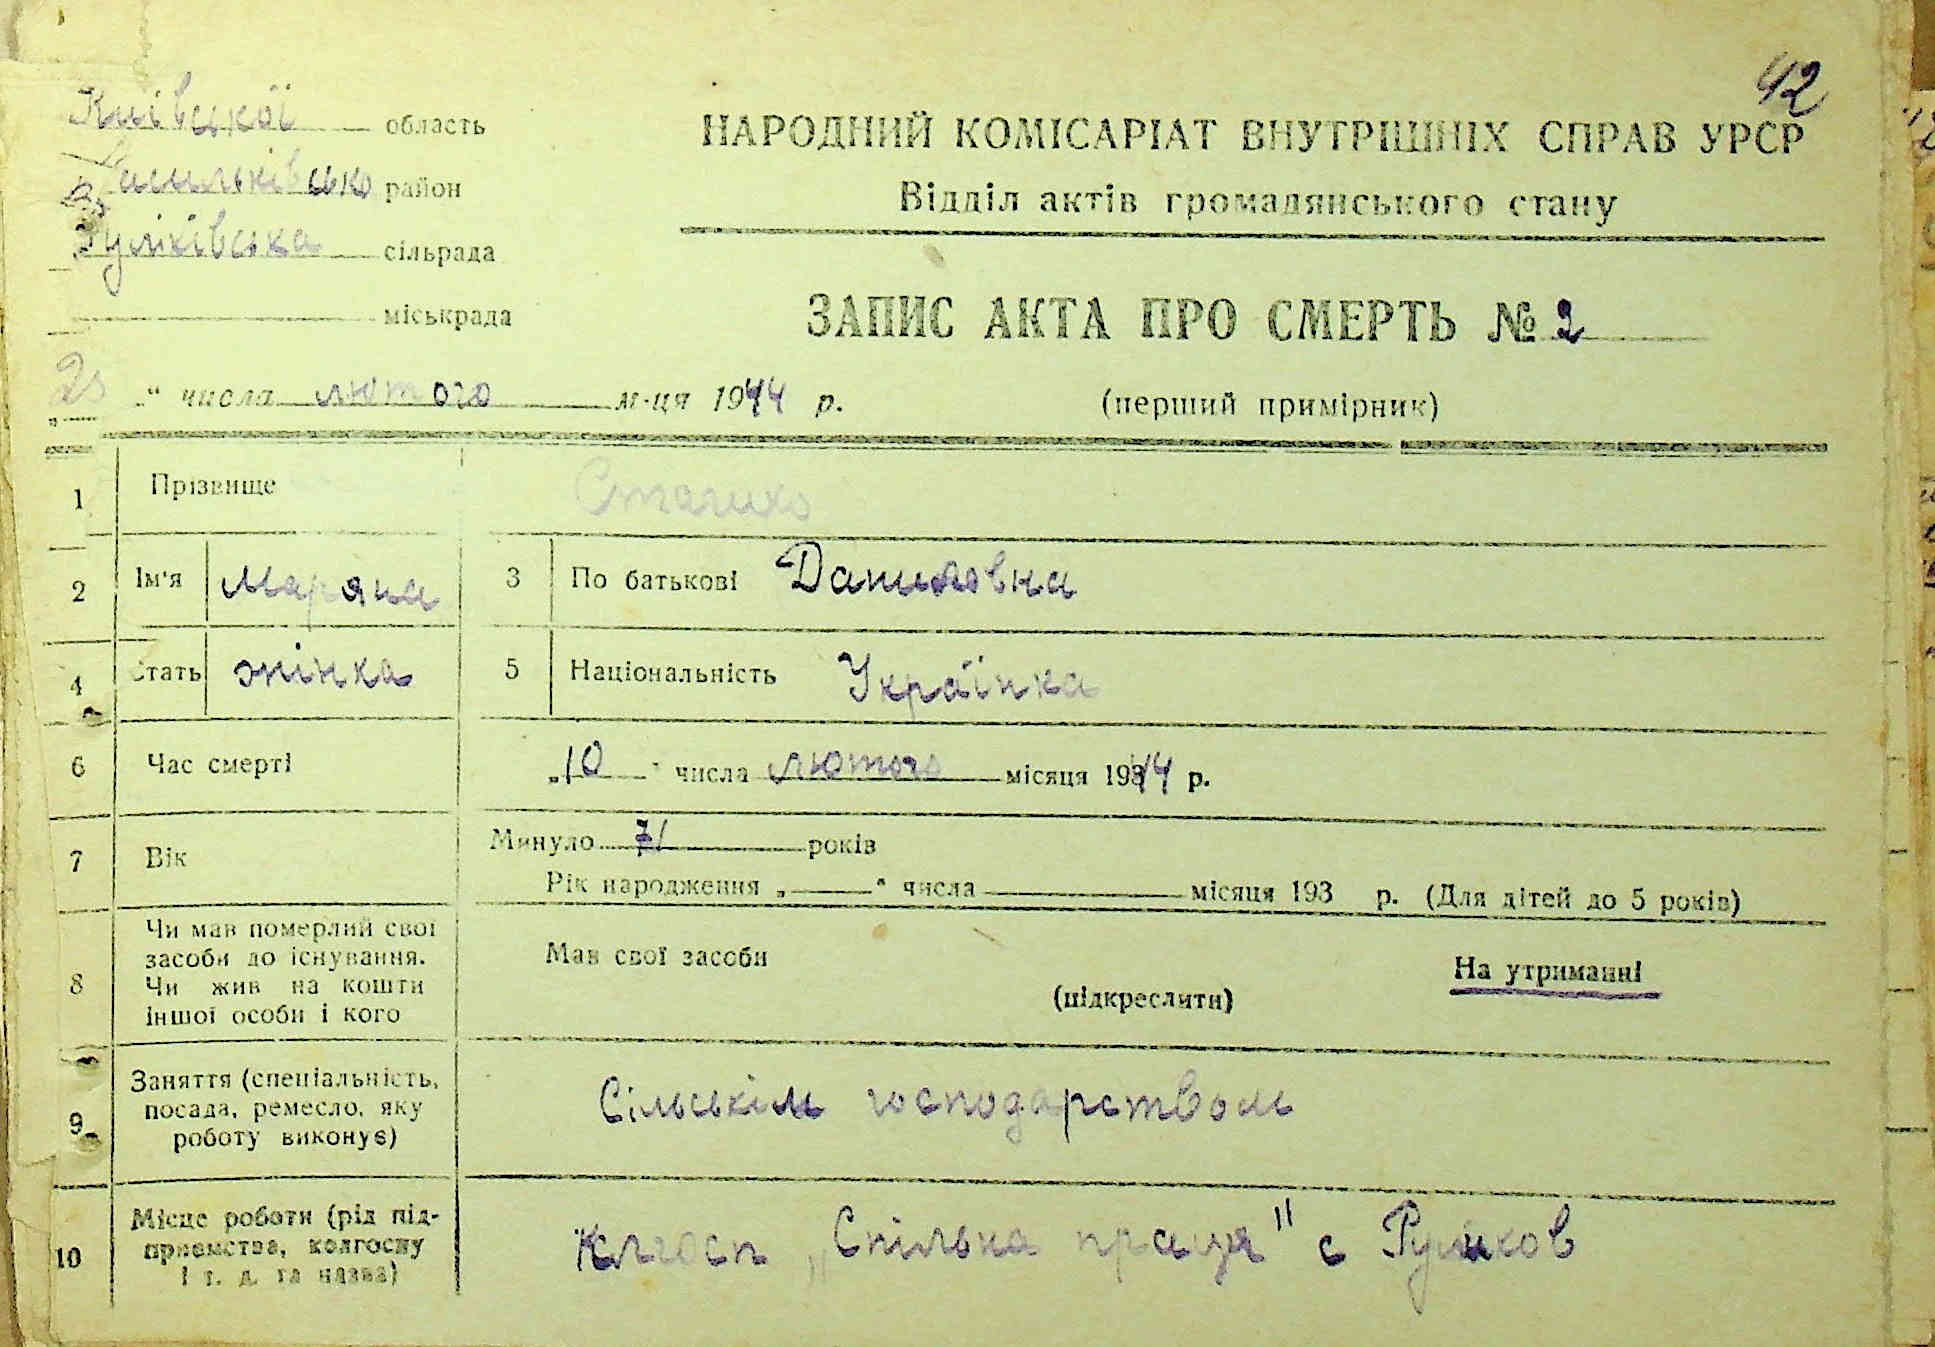 42
Київської область
НАРОДНИЙ КОМІСАРІАТ ВНУТРІШНІХ СПРАВ УРСР
Васильківсько район
Відділ актів громадянського стану
Руликівська сільрада
міськрада
ЗАПИС АКТА ПРО СМЕРТЬ № 2
" числа лютого м-ця 1944 р.
(перший примірник)
1 Прізвище
2 Ім'я Маряна 3 По батькові Даниловна
4 Стать жінка 5 Національність Українка
6 Час смерті „10" числа лютого місяця 1944 р.
7 Вік Минуло 71 років
Рік народження „ " числа місяця 193 р. (Для дітей до 5 років)
8 Чи мав померлий свої
засоби до існування.
Чи жив на кошти
іншої особи і кого
Мав свої засоби
(підкреслити)
На утриманні
9 Заняття (спеціальність,
посада, ремесло, яку
роботу виконує)
Сільськім господарством
10 Місце роботи (рід під-
приємства, колгоспу
і т. д. та назва)
Клгосп „Спільна праця" с Руликов